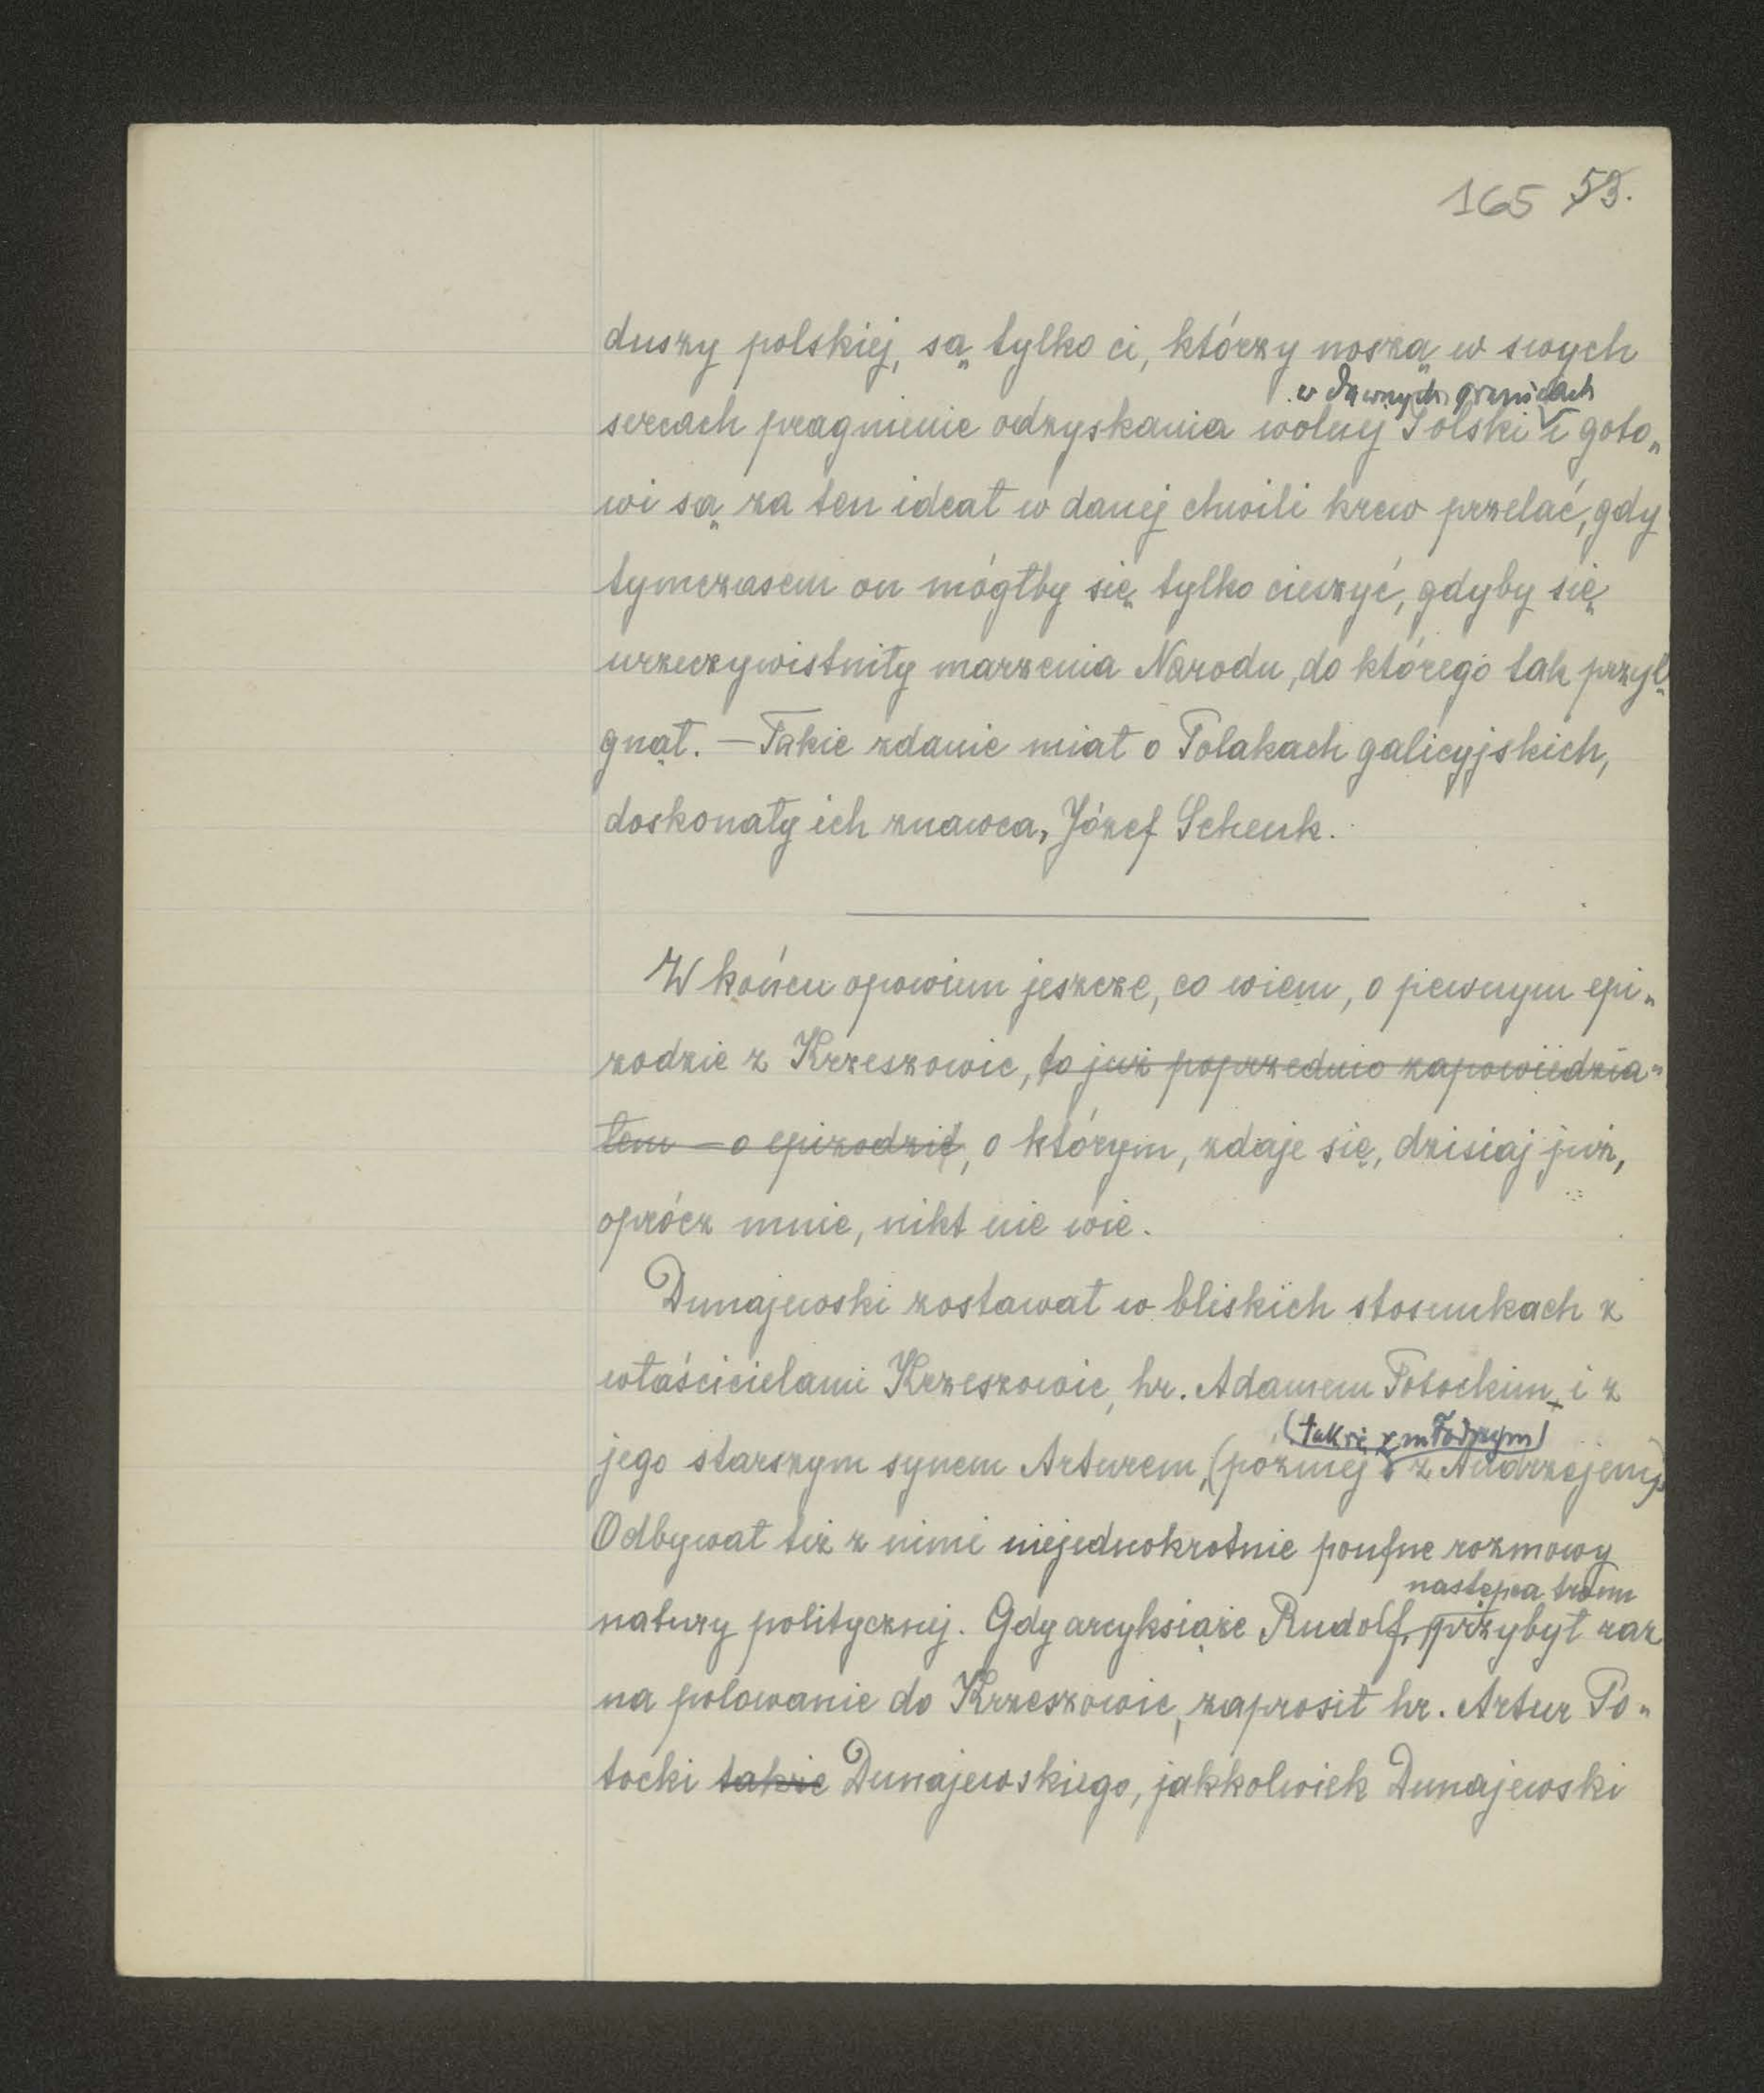 165 53.
duszy polskiej, są tylko ci, którzy noszą w swych
w dawnych granicach
sercach pragnienie odzyskania wolnej Polski i goto„
wi są za ten ideał w danej chwili krew przelać, gdy
tymczasem on mógłby się tylko cieszyć, gdyby się
urzeczywistniły marzenia Narodu, do którego tak przyl„
gnął. — Takie zdanie miał o Polakach galicyjskich,
doskonały ich znawca, Józef Schenk.
W końcu opowiem jeszcze, co wiem, o pewnym epi„
zodzie z Krzeszowic, to już poprzednio zapowiedzia„
łem — o epizodzie, o którym, zdaje się, dzisiaj już,
oprócz mnie, nikt nie wie.
Dunajewski zostawał w bliskich stosunkach z
właścicielami Krzeszowic, hr. Adamem Potockim, i z
(także z młodszym)
jego starszym synem Arturem, (później z Andrzejem).
Odbywał też z nimi niejednokrotnie poufne rozmowy
następca tronu
natury politycznej. Gdy arcyksiąże Rudolf, przybył raz
na polowanie do Krzeszowic, zaprosił hr. Artur Po„
tocki także Dunajewskiego, jakkolwiek Dunajewski